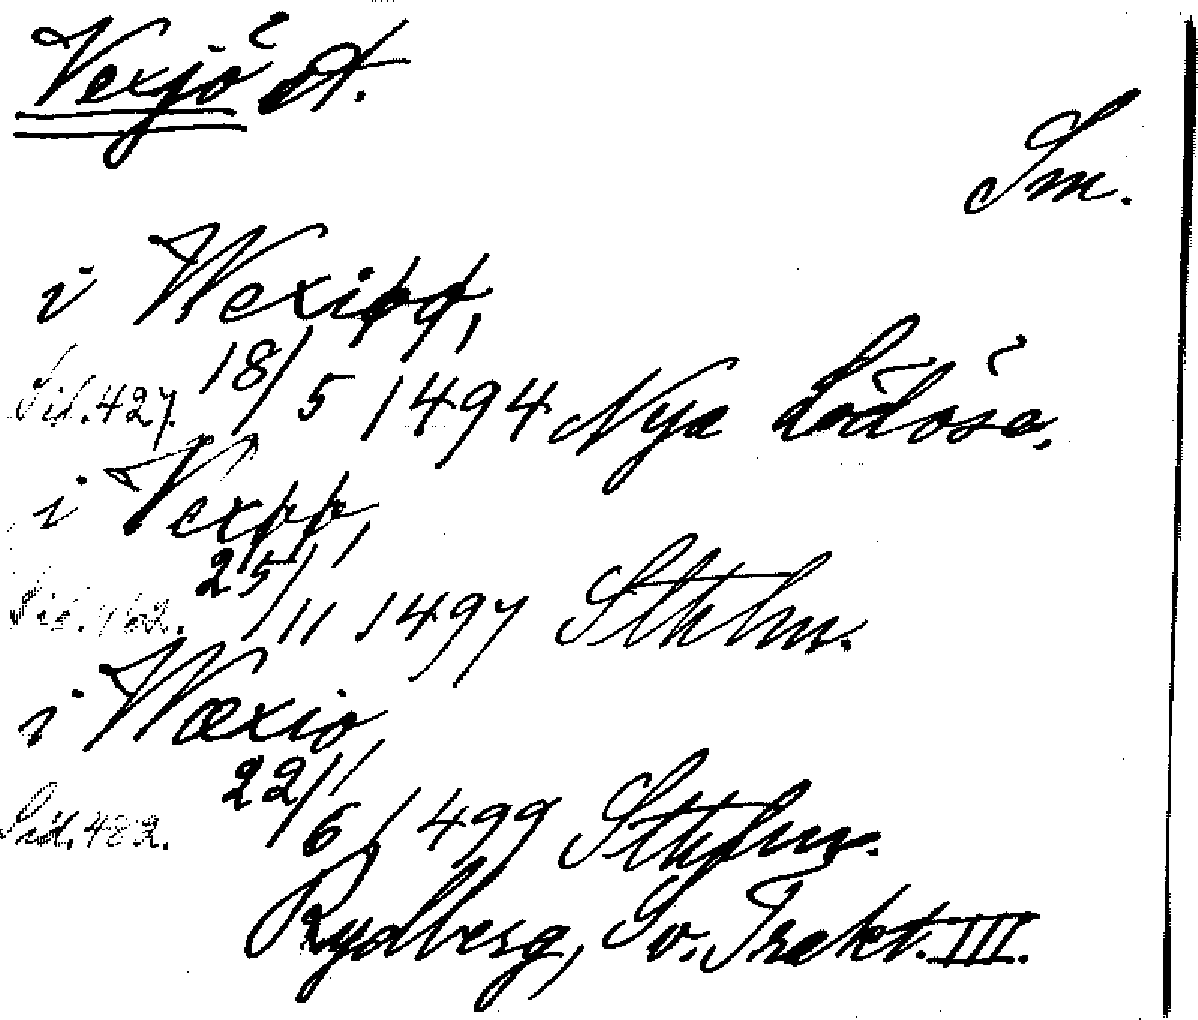 Vexjö st.
Sm.
i Wexiøø,
Sid. 427. 18/5 1494 Nya Lödöse.
i Vexøø,
Sid. 462. 25/11 1497 Sthlm.
i Wæxio,
Sid. 482. 22/6 1499 Sthlm.
Rydberg, Sv. Trakt. III.